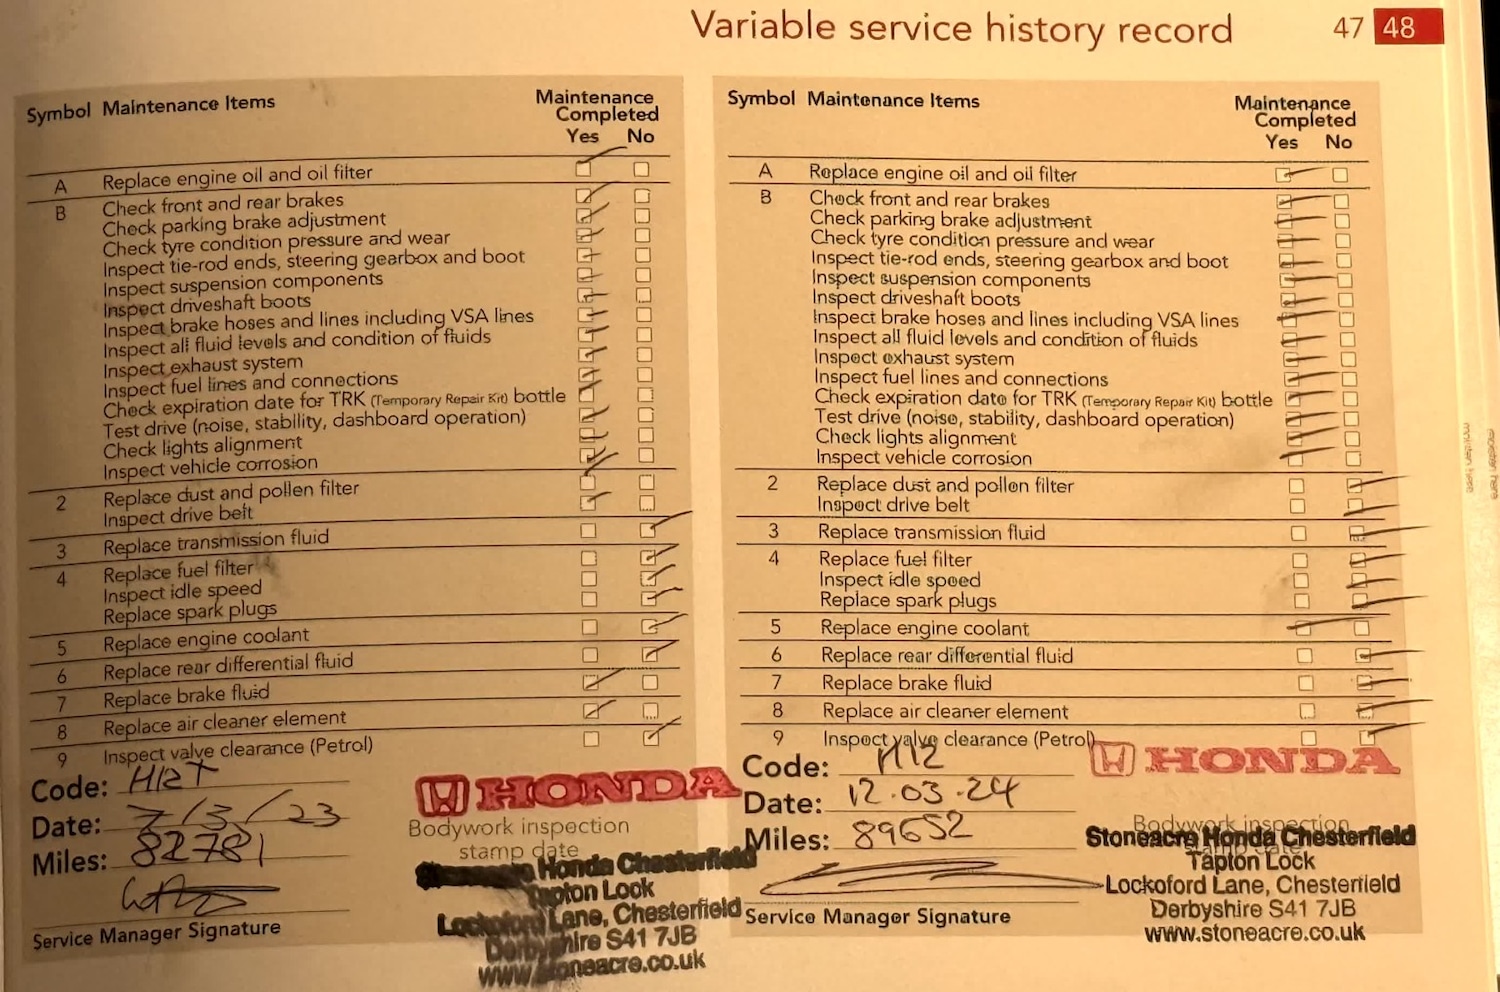 Variable service history record 47 48
Symbol Maintenance Items Maintenance Completed
Yes No
A Replace engine oil and oil filter
B Check front and rear brakes
Check parking brake adjustment
Check tyre condition pressure and wear
Inspect tie-rod ends, steering gearbox and boot
Inspect suspension components
Inspect driveshaft boots
Inspect brake hoses and lines including VSA lines
Inspect all fluid levels and condition of fluids
Inspect exhaust system
Inspect fuel lines and connections
Check expiration date for TRK (Temporary Repair Kit) bottle
Test drive (noise, stability, dashboard operation)
Check lights alignment
Inspect vehicle corrosion
2 Replace dust and pollen filter
Inspect drive belt
3 Replace transmission fluid
4 Replace fuel filter
Inspect idle speed
Replace spark plugs
5 Replace engine coolant
6 Replace rear differential fluid
7 Replace brake fluid
8 Replace air cleaner element
9 Inspect valve clearance (Petrol)
Code:
Date: 7/3/23
Miles: 82781
Service Manager Signature
HONDA
Bodywork inspection
stamp date
Stoneacre Honda Chesterfield
Tapton Lock
Lockoford Lane, Chesterfield
Derbyshire S41 7JB
www.stoneacre.co.uk
Symbol Maintenance Items Maintenance Completed
Yes No
A Replace engine oil and oil filter
B Check front and rear brakes
Check parking brake adjustment
Check tyre condition pressure and wear
Inspect tie-rod ends, steering gearbox and boot
Inspect suspension components
Inspect driveshaft boots
Inspect brake hoses and lines including VSA lines
Inspect all fluid levels and condition of fluids
Inspect exhaust system
Inspect fuel lines and connections
Check expiration date for TRK (Temporary Repair Kit) bottle
Test drive (noise, stability, dashboard operation)
Check lights alignment
Inspect vehicle corrosion
2 Replace dust and pollen filter
Inspect drive belt
3 Replace transmission fluid
4 Replace fuel filter
Inspect idle speed
Replace spark plugs
5 Replace engine coolant
6 Replace rear differential fluid
7 Replace brake fluid
8 Replace air cleaner element
9 Inspect valve clearance (Petrol)
Code: H12
Date: 12.03.24
Miles: 89652
Service Manager Signature
HONDA
Bodywork inspection
stamp date
Stoneacre Honda Chesterfield
Tapton Lock
Lockoford Lane, Chesterfield
Derbyshire S41 7JB
www.stoneacre.co.uk